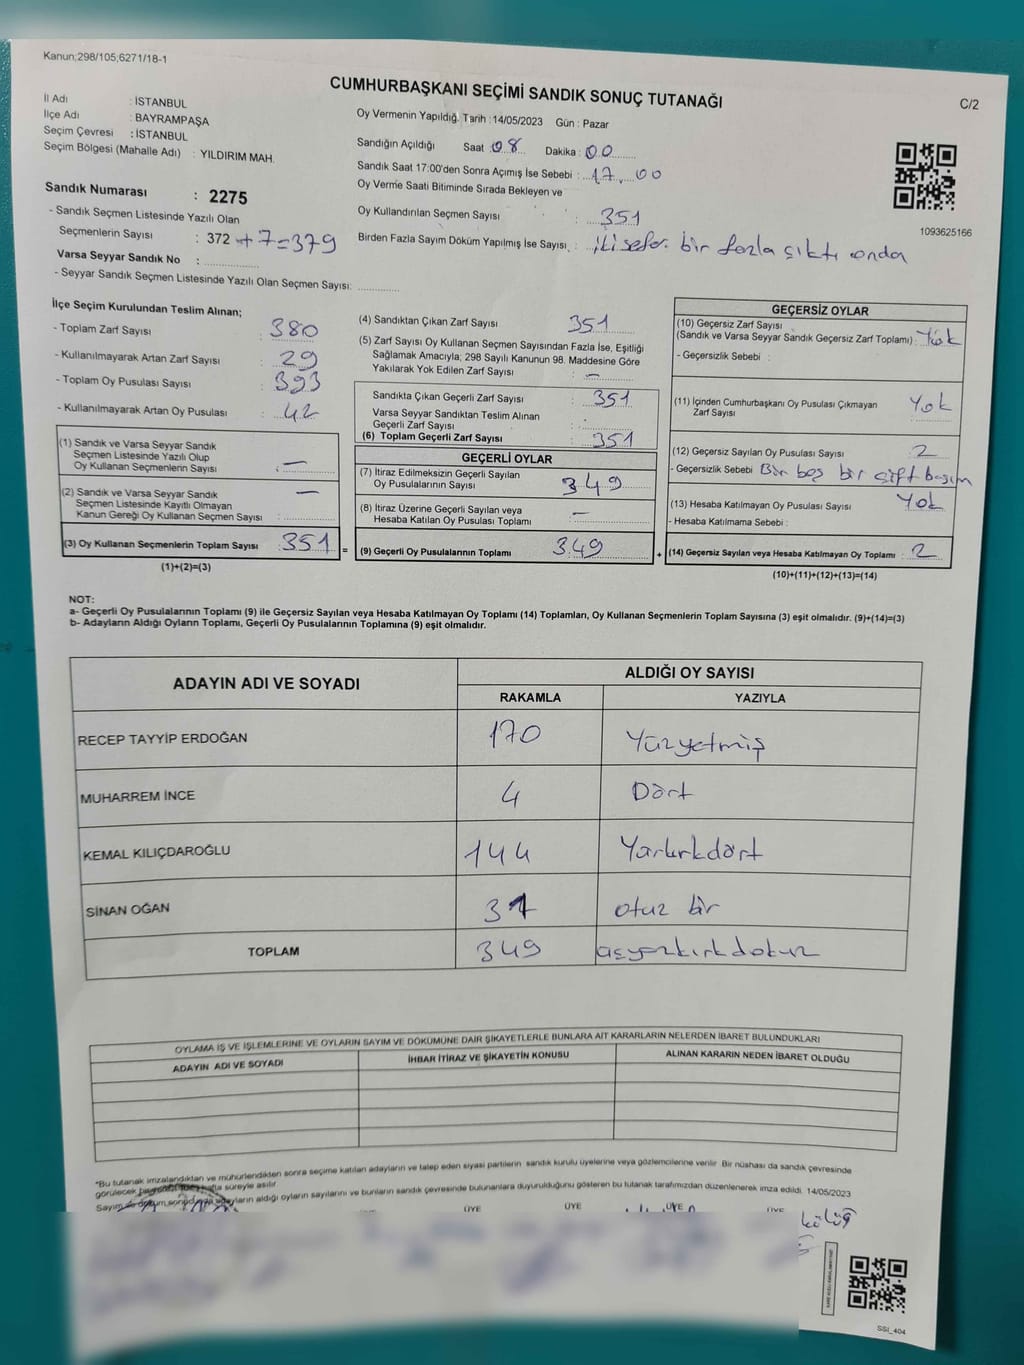 Kanun;298/105;6271/18-1
CUMHURBAŞKANI SEÇİMİ SANDIK SONUÇ TUTANAĞI
C/2
İl Adı : İSTANBUL
İlçe Adı : BAYRAMPAŞA
Seçim Çevresi : İSTANBUL
Seçim Bölgesi (Mahalle Adı) : YILDIRIM MAH.
Sandık Numarası : 2275
- Sandık Seçmen Listesinde Yazılı Olan
Seçmenlerin Sayısı : 372 +7=379
Varsa Seyyar Sandık No :
- Seyyar Sandık Seçmen Listesinde Yazılı Olan Seçmen Sayısı:
Oy Vermenin Yapıldığı, Tarih : 14/05/2023 Gün : Pazar
Sandığın Açıldığı Saat : 08 Dakika : 00
Sandık Saat 17:00'den Sonra Açımış İse Sebebi : 17.00
Oy Verme Saati Bitiminde Sırada Bekleyen ve
Oy Kullandırılan Seçmen Sayısı : 351
Birden Fazla Sayım Döküm Yapılmış İse Sayısı : iki sefer bir fazla çıktı onda
1093625166
İlçe Seçim Kurulundan Teslim Alınan;
- Toplam Zarf Sayısı : 380
- Kullanılmayarak Artan Zarf Sayısı : 29
- Toplam Oy Pusulası Sayısı : 393
- Kullanılmayarak Artan Oy Pusulası : 42
(1) Sandık ve Varsa Seyyar Sandık
Seçmen Listesinde Yazılı Olup
Oy Kullanan Seçmenlerin Sayısı : —
(2) Sandık ve Varsa Seyyar Sandık
Seçmen Listesinde Kayıtlı Olmayan
Kanun Gereği Oy Kullanan Seçmen Sayısı : —
(3) Oy Kullanan Seçmenlerin Toplam Sayısı : 351 =
(1)+(2)=(3)
(4) Sandıktan Çıkan Zarf Sayısı : 351
(5) Zarf Sayısı Oy Kullanan Seçmen Sayısından Fazla İse, Eşitliği
Sağlamak Amacıyla; 298 Sayılı Kanunun 98. Maddesine Göre
Yakılarak Yok Edilen Zarf Sayısı : —
Sandıkta Çıkan Geçerli Zarf Sayısı : 351
Varsa Seyyar Sandıktan Teslim Alınan
Geçerli Zarf Sayısı :
(6) Toplam Geçerli Zarf Sayısı : 351
GEÇERLİ OYLAR
(7) İtiraz Edilmeksizin Geçerli Sayılan
Oy Pusulalarının Sayısı : 349
(8) İtiraz Üzerine Geçerli Sayılan veya
Hesaba Katılan Oy Pusulası Toplamı : —
(9) Geçerli Oy Pusulalarının Toplamı : 349 +
GEÇERSİZ OYLAR
(10) Geçersiz Zarf Sayısı
(Sandık ve Varsa Seyyar Sandık Geçersiz Zarf Toplamı) : Yok
- Geçersizlik Sebebi :
(11) İçinden Cumhurbaşkanı Oy Pusulası Çıkmayan
Zarf Sayısı : Yok
(12) Geçersiz Sayılan Oy Pusulası Sayısı : 2
- Geçersizlik Sebebi : Bir boş bir çift basım
(13) Hesaba Katılmayan Oy Pusulası Sayısı : Yok
- Hesaba Katılmama Sebebi :
(14) Geçersiz Sayılan veya Hesaba Katılmayan Oy Toplamı : 2
(10)+(11)+(12)+(13)=(14)
NOT:
a- Geçerli Oy Pusulalarının Toplamı (9) ile Geçersiz Sayılan veya Hesaba Katılmayan Oy Toplamı (14) Toplamları, Oy Kullanan Seçmenlerin Toplam Sayısına (3) eşit olmalıdır. (9)+(14)=(3)
b- Adayların Aldığı Oyların Toplamı, Geçerli Oy Pusulalarının Toplamına (9) eşit olmalıdır.
ADAYIN ADI VE SOYADI ALDIĞI OY SAYISI
RAKAMLA YAZIYLA
RECEP TAYYİP ERDOĞAN 170 Yüzyetmiş
MUHARREM İNCE 4 Dört
KEMAL KILIÇDAROĞLU 144
SİNAN OĞAN 31 otuz bir
TOPLAM 349
OYLAMA İŞ VE İŞLEMLERİNE VE OYLARIN SAYIM VE DÖKÜMÜNE DAİR ŞİKAYETLERLE BUNLARA AİT KARARLARIN NELERDEN İBARET BULUNDUKLARI
ADAYIN ADI VE SOYADI İHBAR İTİRAZ VE ŞİKAYETİN KONUSU ALINAN KARARIN NEDEN İBARET OLDUĞU
*Bu tutanak imzalandıktan ve mühürlendikten sonra seçime katılan adayların ve talep eden siyasi partilerin sandık kurulu üyelerine veya gözlemcilerine verilir. Bir nüshası da sandık çevresinde
görülecek bir hafta süreyle asılır.
Sayım ve döküm sonucunda adayların aldığı oyların sayılarını ve bunların sandık çevresinde bulunanlara duyurulduğunu gösteren bu tutanak tarafımızdan düzenlenerek imza edildi. 14/05/2023
ÜYE ÜYE ÜYE ÜYE
SSİ_404